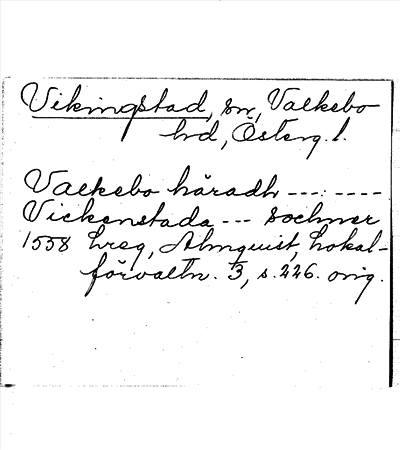 Vikingstad, sn, Valkebo
hd, Österg. l.
Valkebo häradh ---: ----
Vickenstada --- sochner
1558 Lreg, Almquist, Lokal-
förvaltn. 3, s. 226. orig.